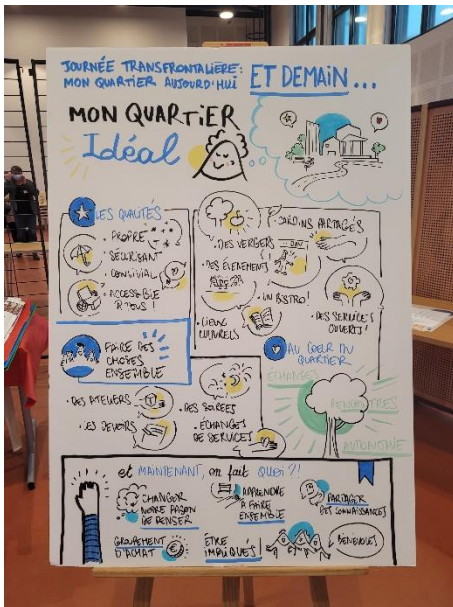 JOURNÉE TRANSFRONTALIÈRE:
MON QUARTIER AUJOURD'HUI
ET DEMAIN...
MON QUARTIER
Idéal
LES QUALITÉS
• PROPRE
• SÉCURISANT
• CONVIVIAL
• ACCESSIBLE
À TOUS !
FAIRE DES
CHOSES
ENSEMBLE
• DES ATELIERS
• LES DEVOIRS
• DES SOIRÉES
• ÉCHANGES
DE SERVICES
• JARDINS PARTAGÉS
• DES VERGERS
• DES ÉVÉNEMENTS
• UN BISTRO !
• LIEUX
CULTURELS
• DES SERVICES
OUVERTS !
AU COEUR DU
QUARTIER
ÉCHANGES
RENCONTRES
AUTONOMIE
et MAINTENANT, on fait Quoi ?!
CHANGER
NOTRE FAÇON
DE PENSER
APPRENDRE
À FAIRE
ENSEMBLE
PARTAGER
DES CONNAISSANCES
GROUPEMENT
D'ACHAT
ÊTRE
IMPLIQUÉS
BÉNÉVOLES